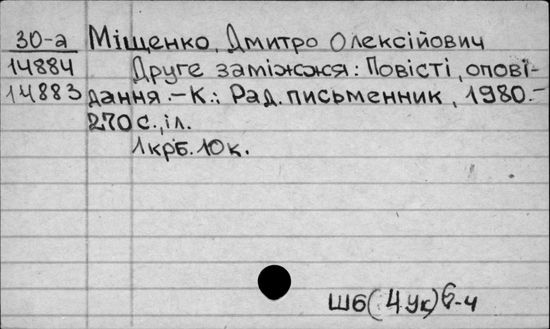 30-а Міщенко, Дмитро Олексійович
14884 Друге заміжжя: Повісті, опові-
14883 дання.-К.: Рад. письменник, 1980.-
270 с., іл.
1крб. 10к.
Ш6(4Ук)6-4